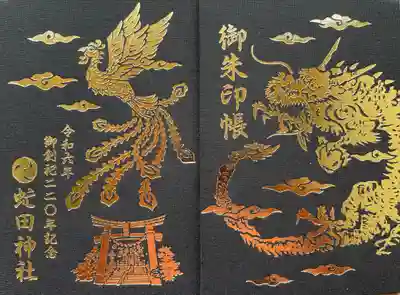 御朱印帳
令和六年
御創祀二二〇年記念
蛇田神社